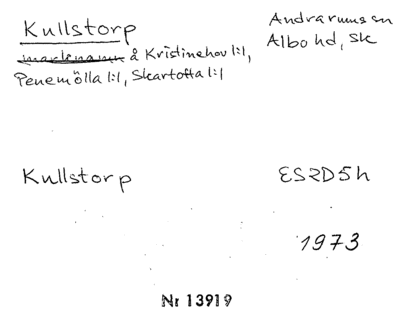 Kullstorp
Andrarums sn
Albo hd, Sk
marknamn å Kristinehov 1:1,
Penemölla 1:1, Skartofta 1:1
Kullstorp
ES2D5h
1973
Nr 13919